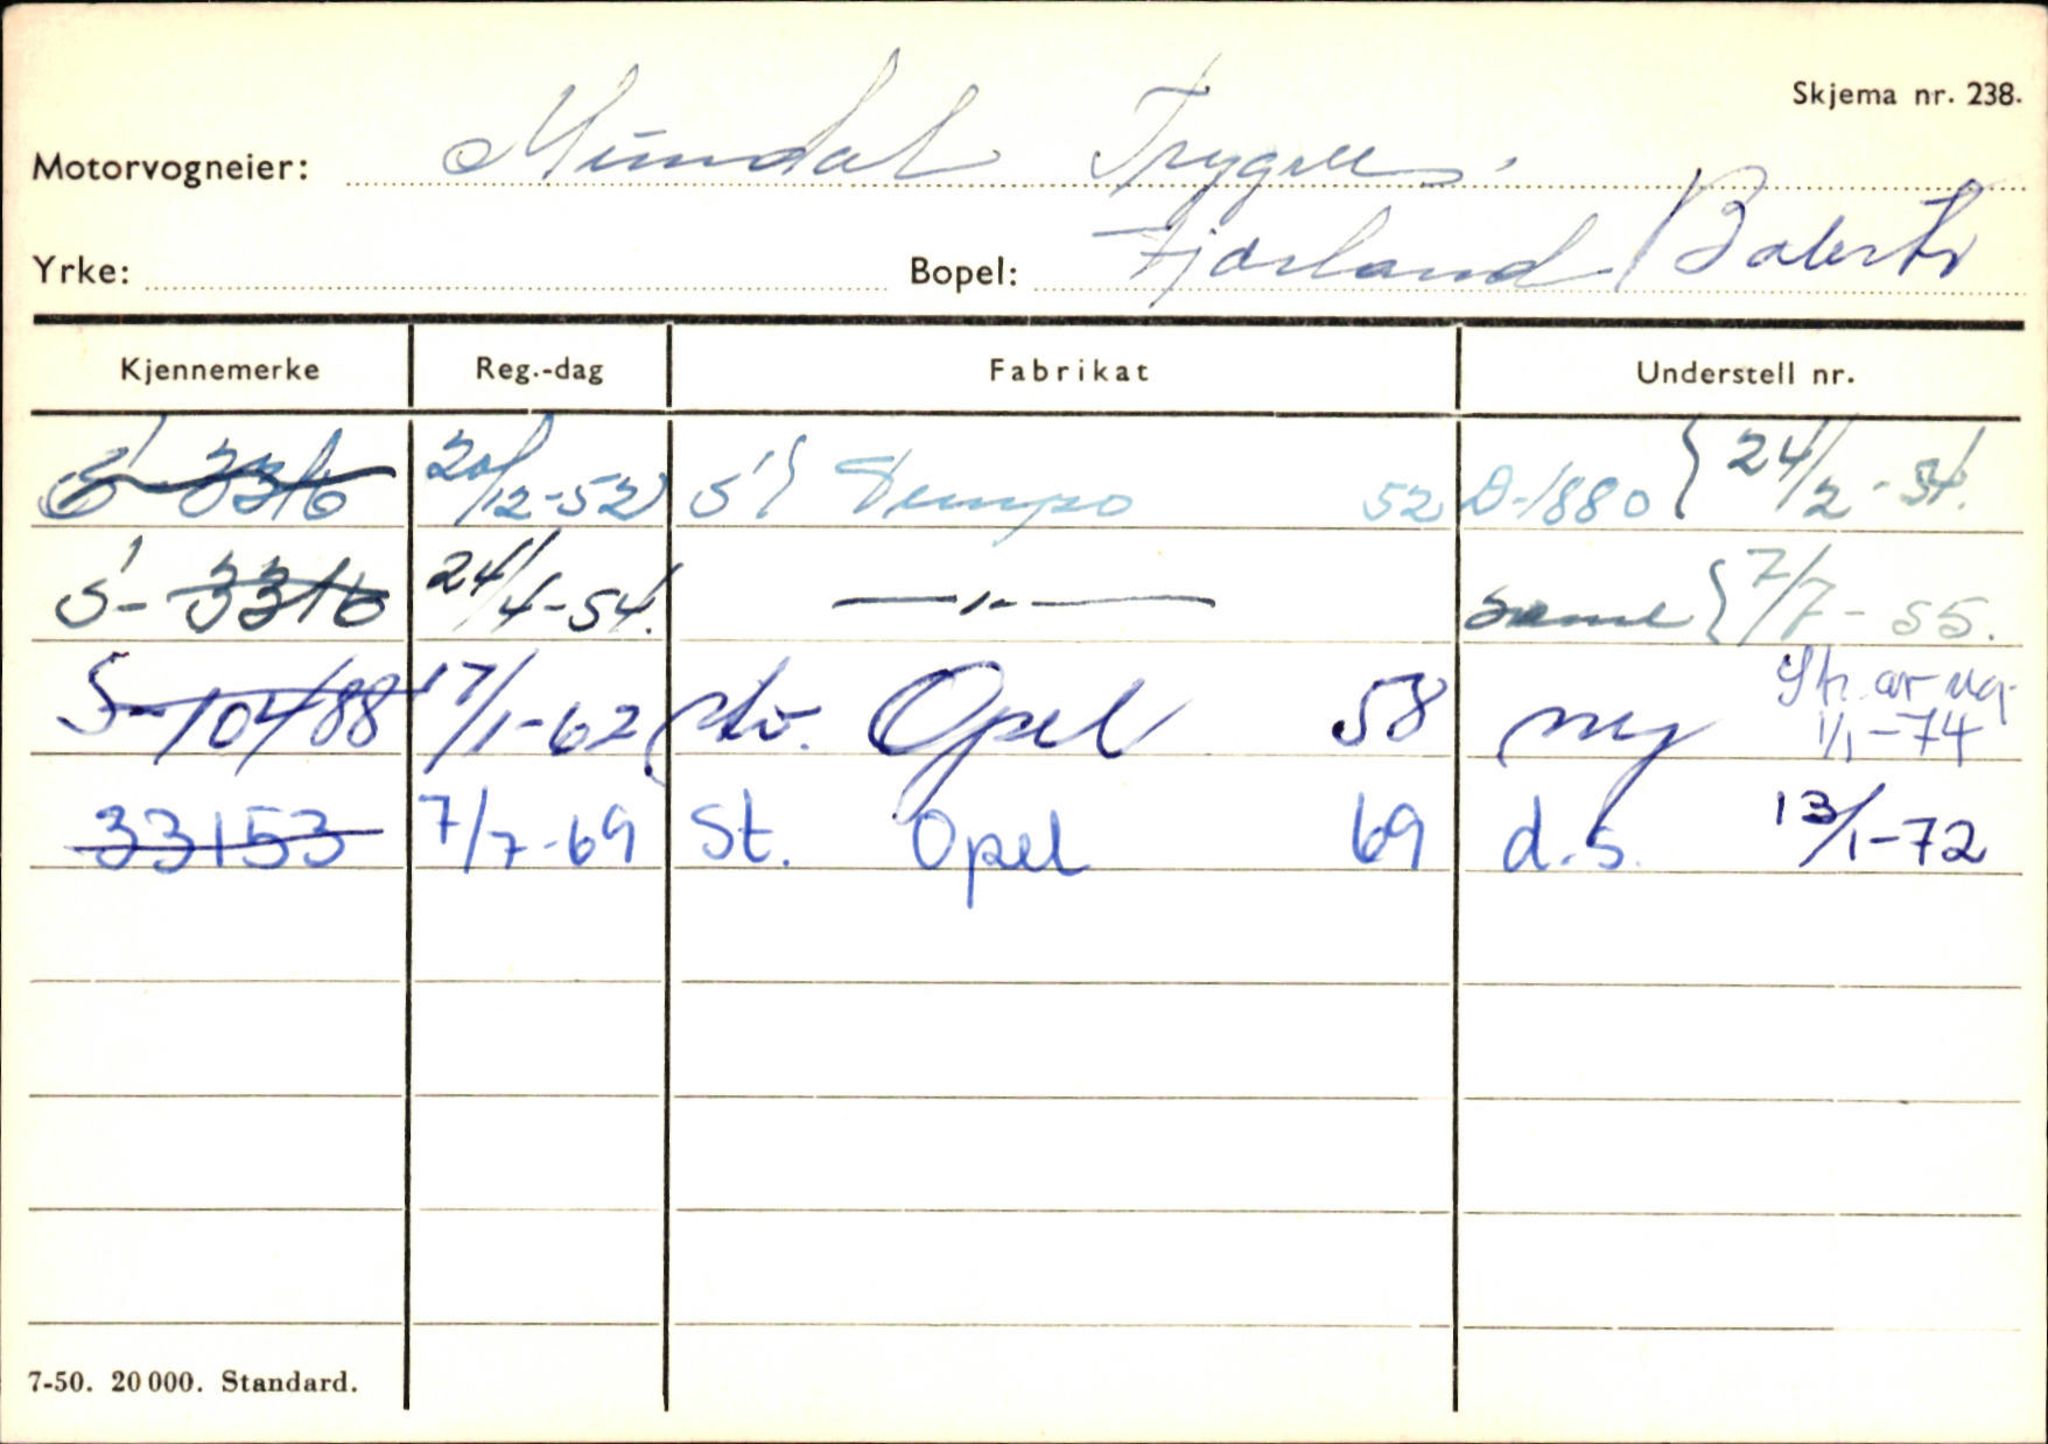 Skjema nr. 238.
Motorvogneier: Mundal Trygve.
Yrke: Bopel: Fjærland / Balestr
Kjennemerke Reg.-dag Fabrikat Understell nr.
S-3316 20/12-52 Tempo 52 D-1880 { 24/2-54.
S-3316 24/4-54. —"— same { 7/7-55.
S-10488 17/1-62 stv. Opel 58 ny Str. av reg. 1/1-74
33153 7/7-69 St. Opel 69 d.s. 13/1-72
7-50. 20 000. Standard.